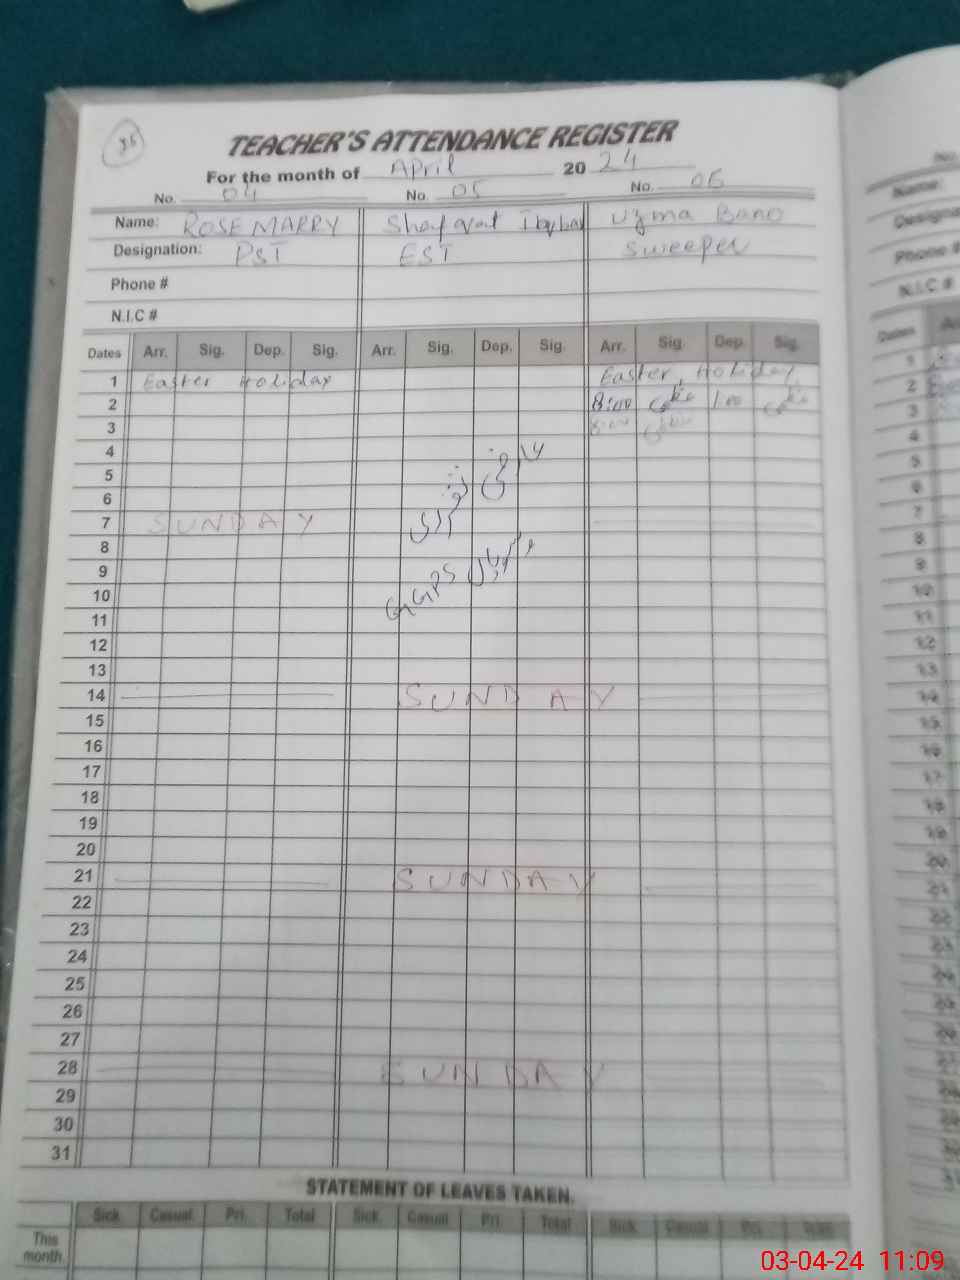 35
TEACHER'S ATTENDANCE REGISTER
For the month of April 20 24
No. 04 No. 05 No. 06
Name: ROSE MARRY Shafqat Uzma Bano
Designation: PST EST Sweeper
Phone #
N.I.C #
Dates Arr. Sig. Dep. Sig. Arr. Sig. Dep. Sig. Arr. Sig. Dep. Sig.
1 Easter Holiday Easter Holiday
2 8:00 1:00
3 8:00
4
5 عارضی
6
7 SUNDAY
8
9
10 GGPS
11
12
13
14 SUNDAY
15
16
17
18
19
20
21 SUNDAY
22
23
24
25
26
27
28 SUNDAY
29
30
31
STATEMENT OF LEAVES TAKEN.
Sick Casual Pri. Total Sick. Casual Pri. Total Sick. Casual Pri. Total
This month.
03-04-24 11:09
No.
Name:
Designa
Phone #
N.I.C #
Dates Arr
1
2
3
4
5
6
7
8
9
10
11
12
13
14
15
16
17
18
19
20
21
22
23
24